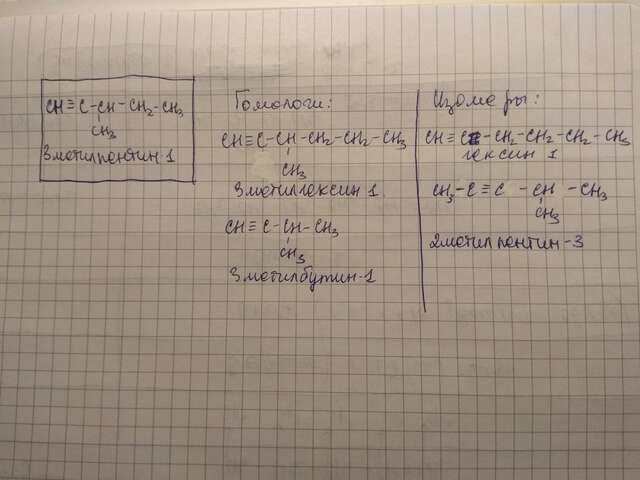 CH≡C-CH-CH₂-CH₃
CH₃
3метилпентин 1
Гомологи:
CH≡C-CH-CH₂-CH₂-CH₃
CH₃
3метилгексин 1
CH≡C-CH-CH₃
CH₃
3метилбутин-1
Изомеры:
CH≡C-CH₂-CH₂-CH₂-CH₃
гексин 1
CH₃-C≡C-CH-CH₃
CH₃
2метилпентин-3